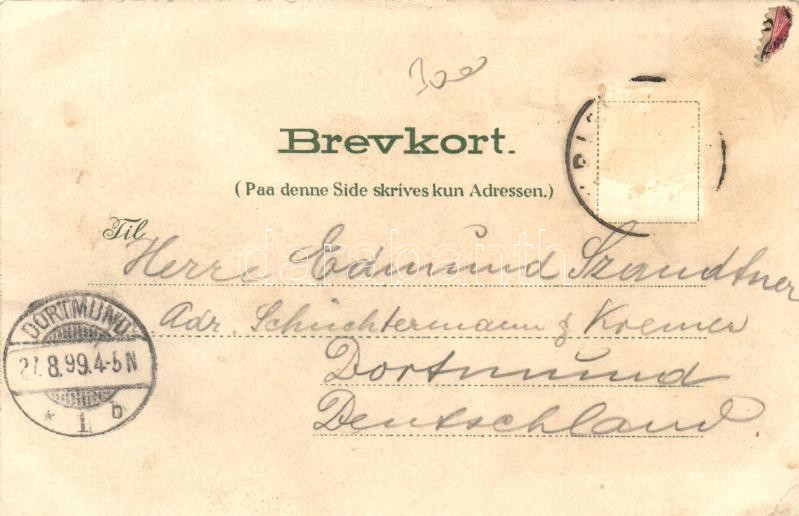 300
Brevkort.
(Paa denne Side skrives kun Adressen.)
Til
Herre Edmund Szandtner
Adr. Schüchtermann & Kremer
Dortmund
Deutschland.
DORTMUND
27.8.99.4-5N
* 1 b
darabanth